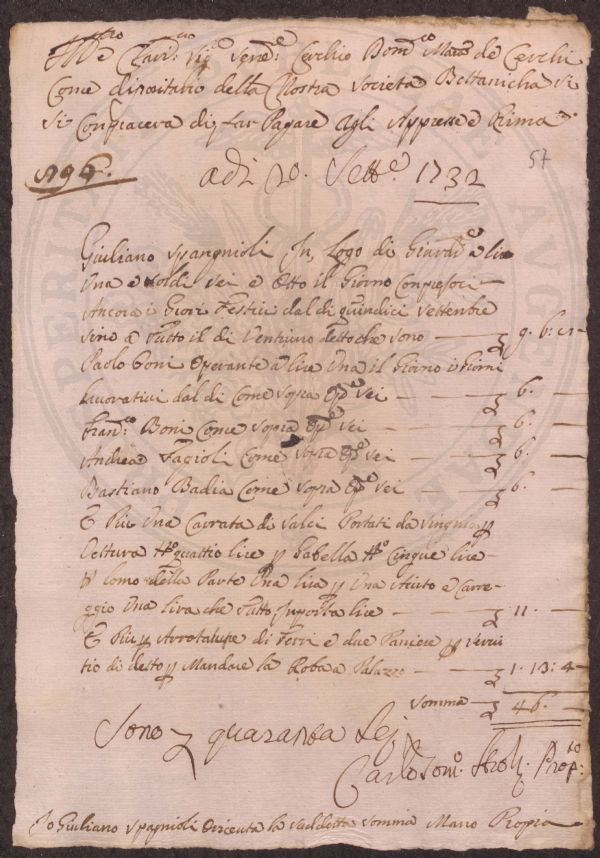 Come dipositario della Nostra Societa Bottanicha Si
Si Compiacera di far Pagare Agli Appresse e Prima
№ 96. adi 20. Sett.e 1732
57
Giuliano Spagnioli In logo di e lire
Una e Soldi Sei e Otto il Giorno Compresoci
Ancora i Giorni Festivi dal di quindici Settenbre
Sino a Tutto il di Ventuno detto che Sono — 9. 6:
Paolo Boni Operante a lire Una il Giorno i Giorni
Lavorativi dal di Come Sopra Op.e Sei — 6. —
Fran.co Boni Come Sopra Op.e Sei — 6. —
Andrea Fagioli Come Sopra Op.e Sei — 6. —
Bastiano Badia Come Sopra Op.e Sei — 6. —
E Piu Una Carrata di Salci Portati da
Vettura quattro lire Gabella Cinque lire
Una lira Una Aiuto e Carre-
ggio Una lira che Tutto Inporta lire — 11. —
E Piu Arrotature di Ferri e due Paniere Servi-
tio di detto Mandare la Roba a Palazzo — 1. 13: 4
Somma — 46. —
Sono quaranta Sej
Carlo Prop.
Io Giuliano Spagnioli la Suddetta Somma Mano Propia